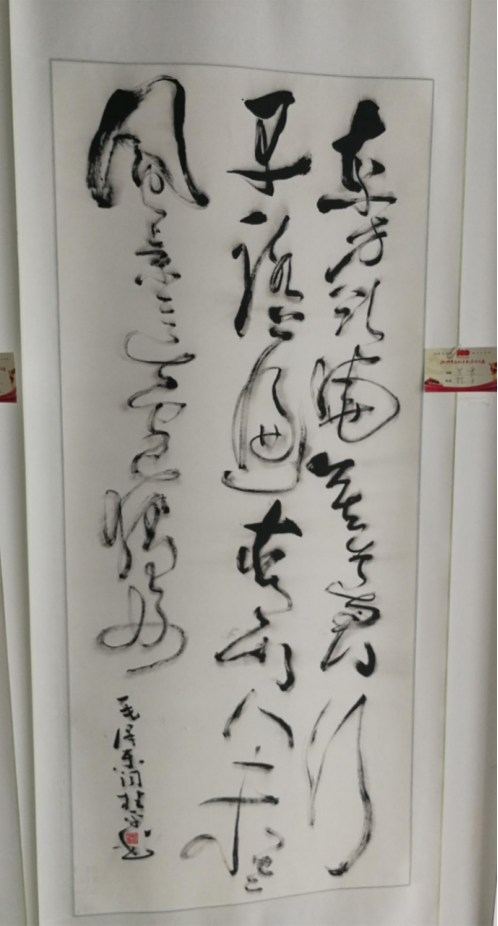 东方欲晓莫道君行
早踏遍青山人未老
风景这边独好
毛泽东词